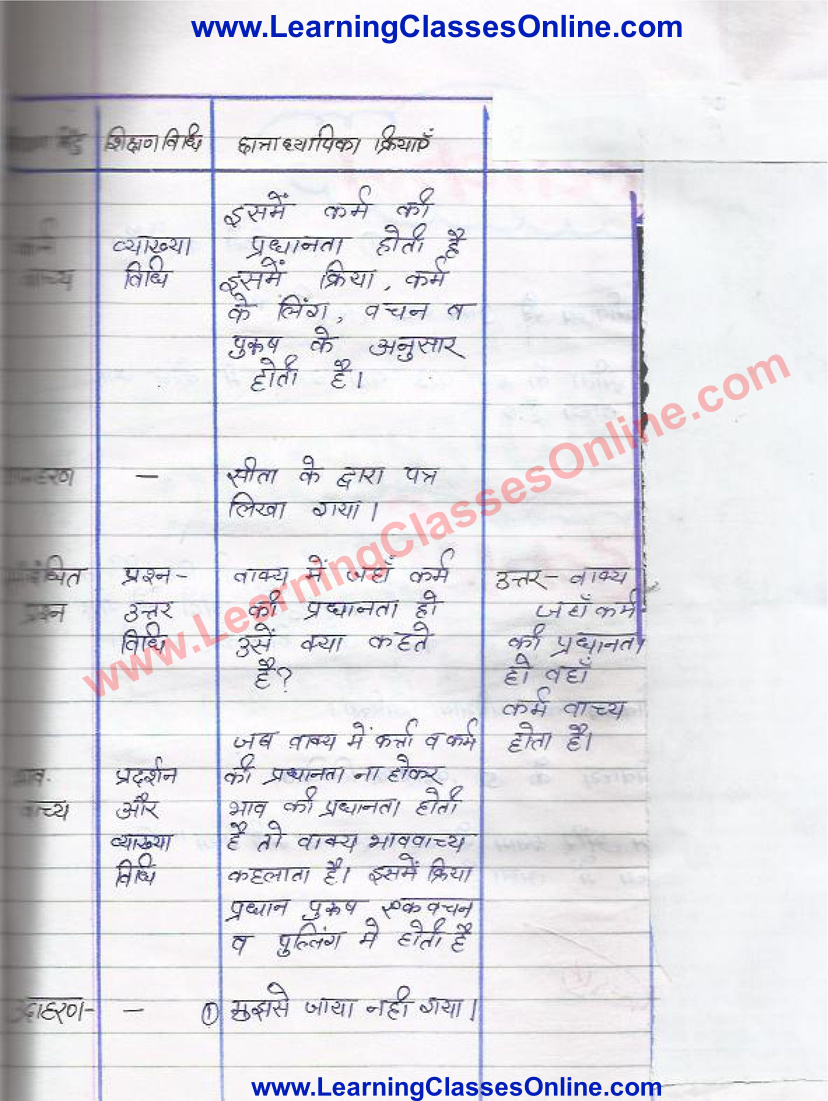 www.LearningClassesOnline.com
शिक्षण विधि छात्राध्यापिका क्रियाएँ
इसमें कर्म की
व्याख्या प्रधानता होती है
वाच्य विधि इसमें क्रिया, कर्म
के लिंग, वचन व
पुरूष के अनुसार
होती है।
सीता के द्वारा पत्र
लिखा गया।
प्रश्न- वाक्य में जहाँ कर्म उत्तर- वाक्य
प्रश्न उत्तर की प्रधानता हो जहाँ कर्म
विधि उसें क्या कहते की प्रधानता
है? हो वहाँ
कर्म वाच्य
जब वाक्य में कर्त्ता व कर्म होता है।
भाव. प्रदर्शन की प्रधानता ना होकर
वाच्य और भाव की प्रधानता होती
व्याख्या है तो वाक्य भाववाच्य
विधि कहलाता है। इसमें क्रिया
प्रधान पुरूष एकवचन
व पुल्लिंग मे होती है
उदाहरण- - ① मुझसे जाया नहीं गया।
www.LearningClassesOnline.com
www.LearningClassesOnline.com